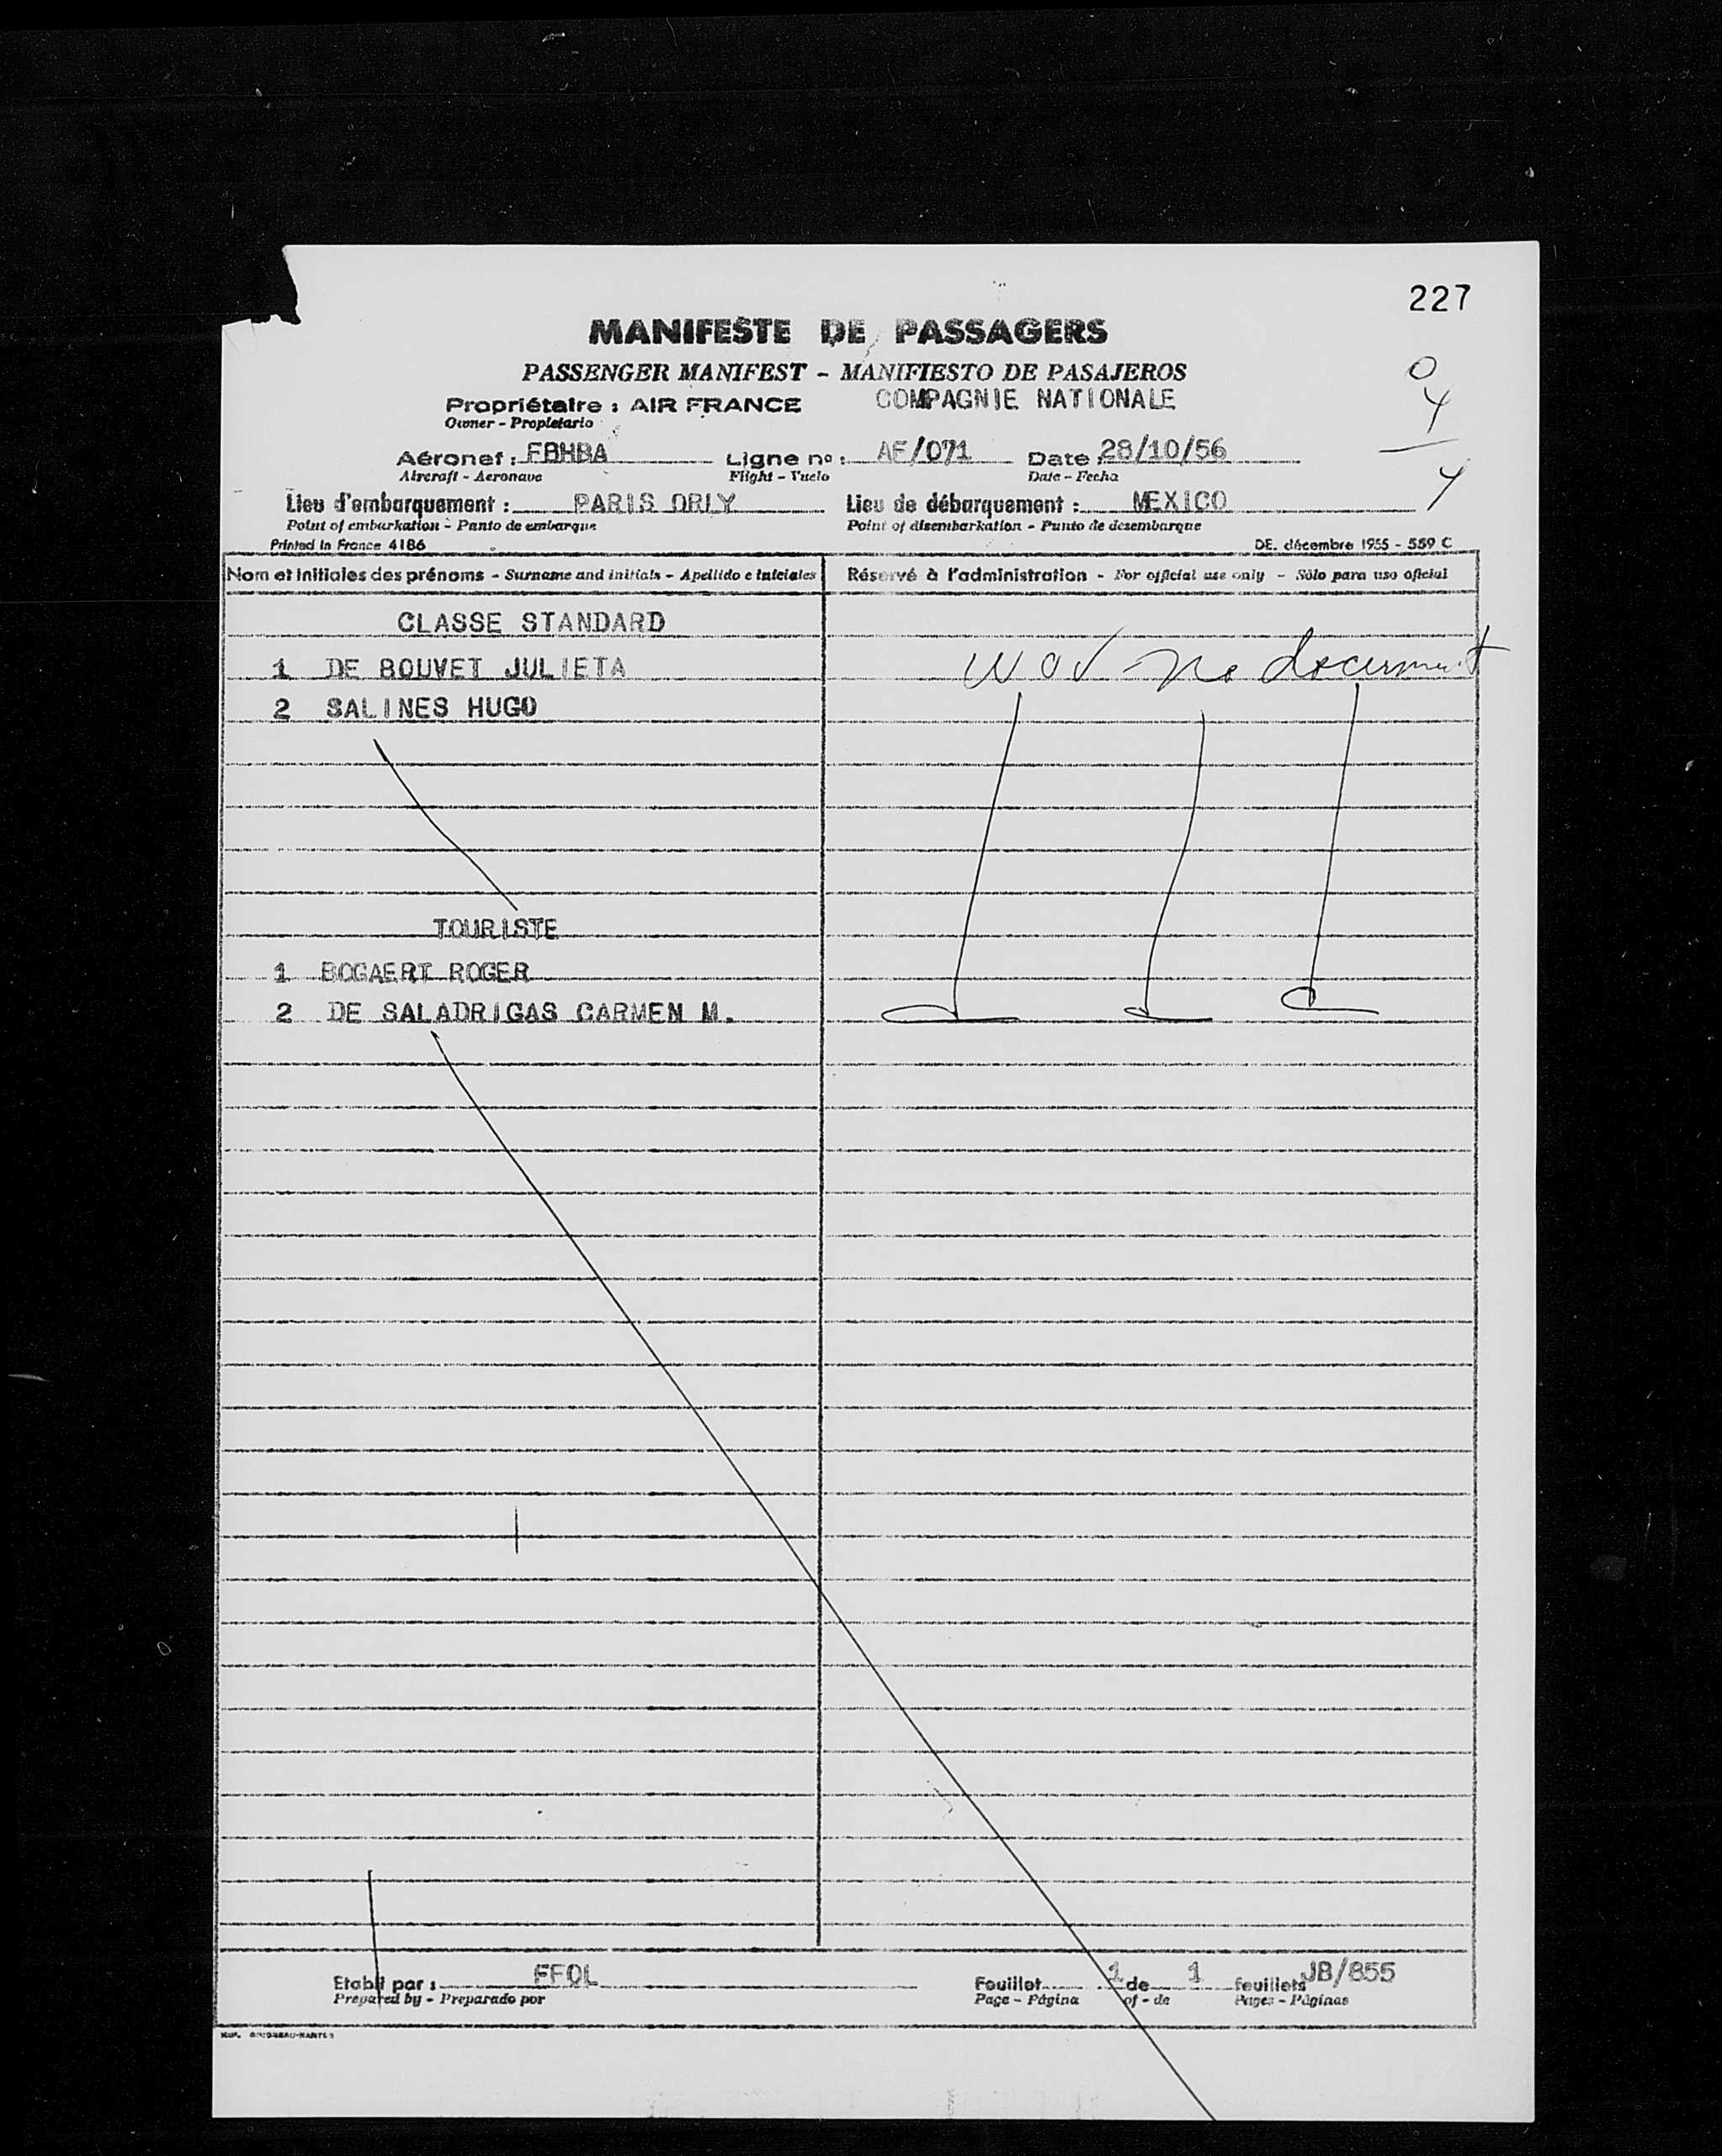 227
MANIFESTE DE PASSAGERS
PASSENGER MANIFEST - MANIFIESTO DE PASAJEROS
Propriétaire : AIR FRANCE COMPAGNIE NATIONALE
Owner - Propietario
0
4
4
Aéronef : FBHBA Ligne no : AF/071 Date : 28/10/56
Aircraft - Aeronave Flight - Vuelo Date - Fecha
Lieu d'embarquement : PARIS ORLY Lieu de débarquement : MEXICO
Point of embarkation - Punto de embarque Point of disembarkation - Punto de desembarque
Printed in France 4186 DE. décembre 1955 - 559 C
Nom et initiales des prénoms - Surname and initials - Apellido e iniciales Réservé à l'administration - For official use only - Sólo para uso oficial
CLASSE STANDARD
1 DE BOUVET JULIETA WOV - no document
2 SALINES HUGO
TOURISTE
1 BOGAERT ROGER
2 DE SALADRIGAS CARMEN M.
Etabli par : FFOL Feuillet 1 de 1 feuillets JB/855
Prepared by - Preparado por Page - Página of - de Pages - Páginas